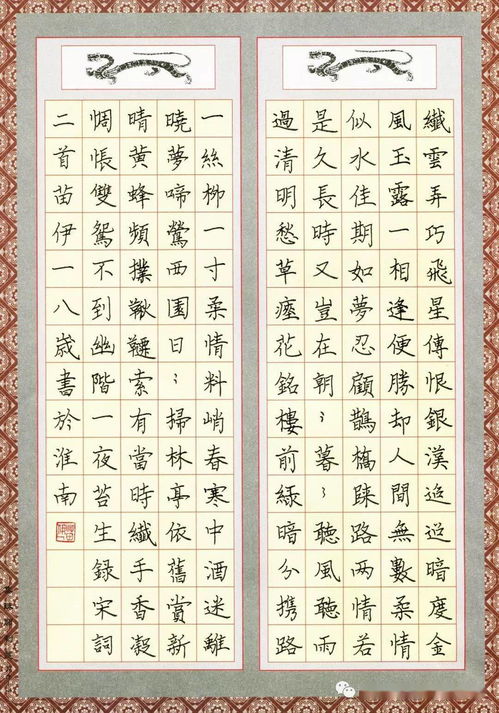 纖雲弄巧飛星傳恨銀漢迢迢暗度金
風玉露一相逢便勝却人間無數柔情
似水佳期如夢忍顧鵲橋歸路两情若
是久長時又豈在朝〻暮〻聽風聽雨
過清明愁草瘞花銘樓前緑暗分携路
一絲柳一寸柔情料峭春寒中酒迷離
曉夢啼鶯西園日〻掃林亭依舊賞新
晴黄蜂頻撲鞦韆索有當時纖手香凝
惆悵雙鴛不到幽階一夜苔生録宋詞
二首苗伊一八歲書於淮南